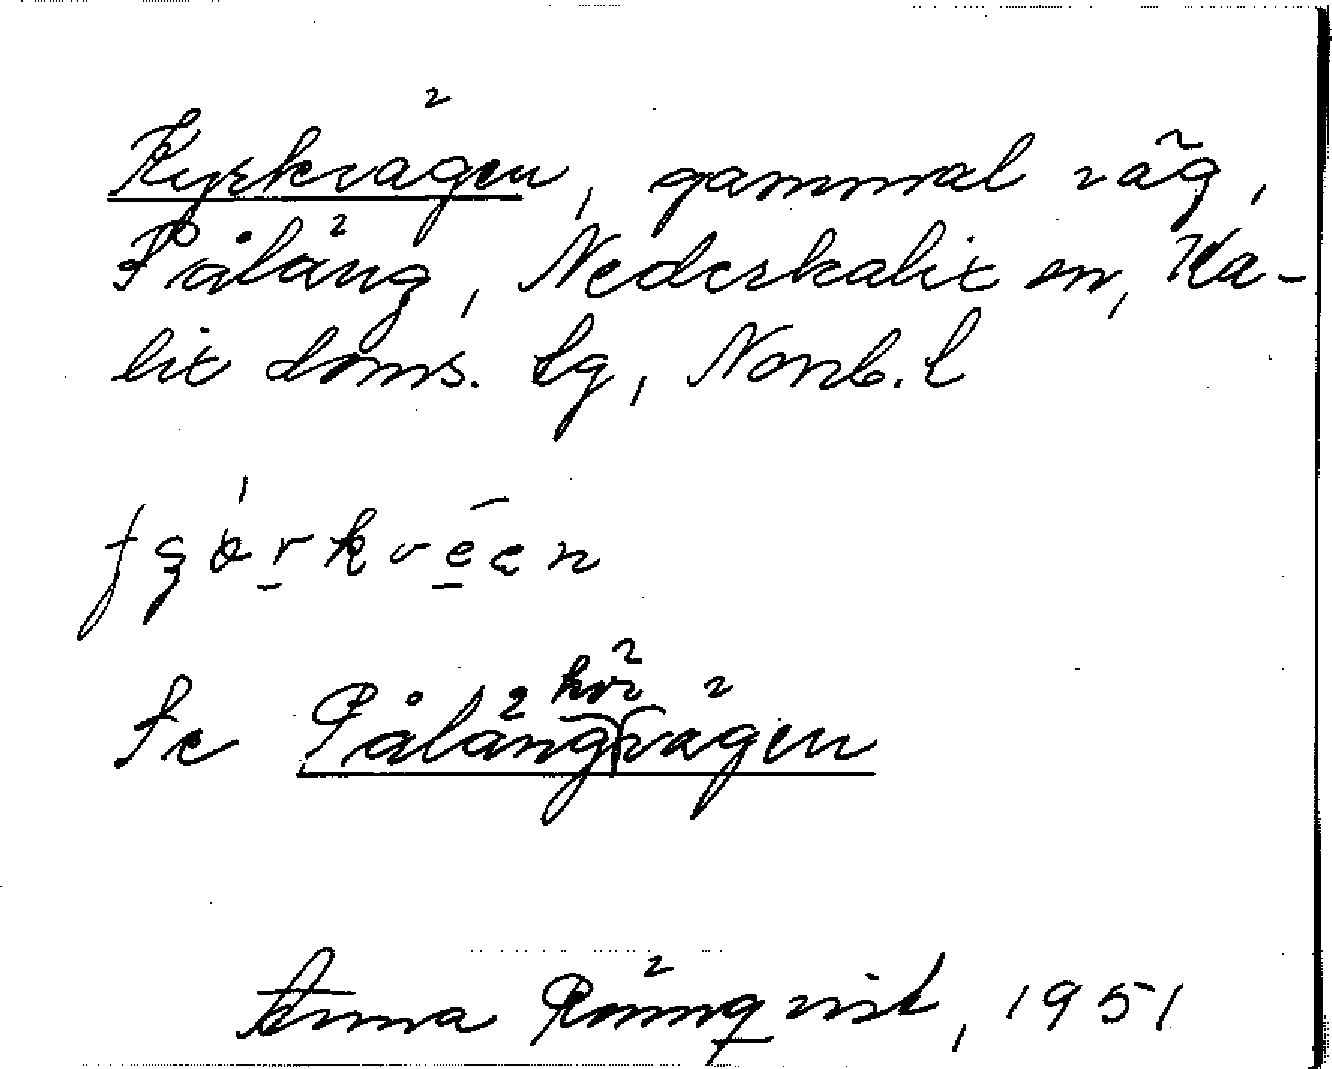 Kyrkvägen, gammal väg,
Påläng, Nederkalix sn, Ka-
lix doms. tg, Norrb. l
Se Pålängkörvägen
Anna Rönnqvist, 1951